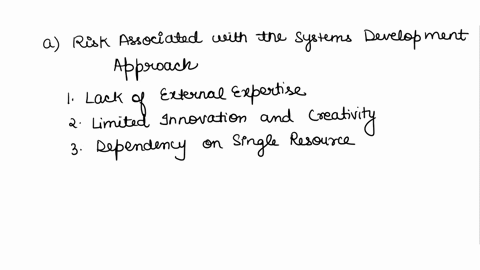 a) Risk Associated with the Systems Development
Approach
1. Lack of External Expertise
2. Limited Innovation and Creativity
3. Dependency on Single Resource